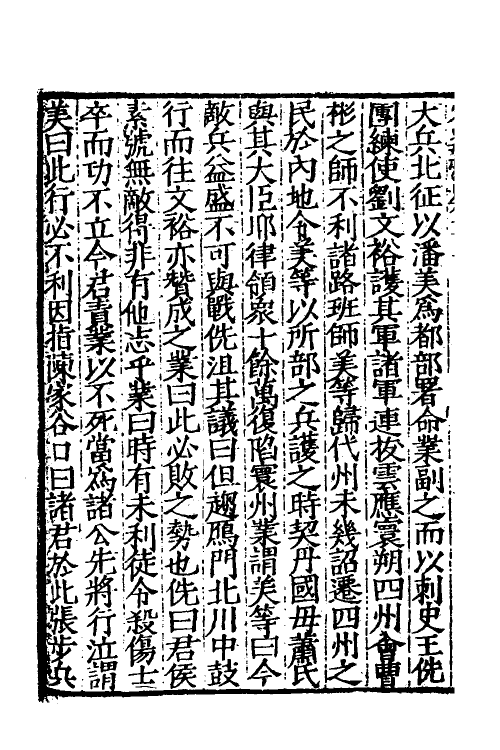 大兵北征以潘美為都部署命業副之而以刺史王侁
團練使劉文裕護其軍諸軍連拔雲應寰朔四州會曹
彬之師不利諸路班師美等歸代州未幾詔遷四州之
民於內地令美等以所部之兵護之時契丹國母蕭氏
與其大臣耶律領眾十餘萬復陷寰州業謂美等曰今
敵兵益盛不可與戰侁沮其議曰但趨鴈門北川中鼓
行而往文裕亦贊成之業曰此必敗之勢也侁曰君侯
素號無敵得非有他志乎業曰時有未利徒令殺傷士
卒而功不立今君責業以不死當為諸公先將行泣謂
美曰此行必不利因指陳家谷口曰諸君於此張步兵